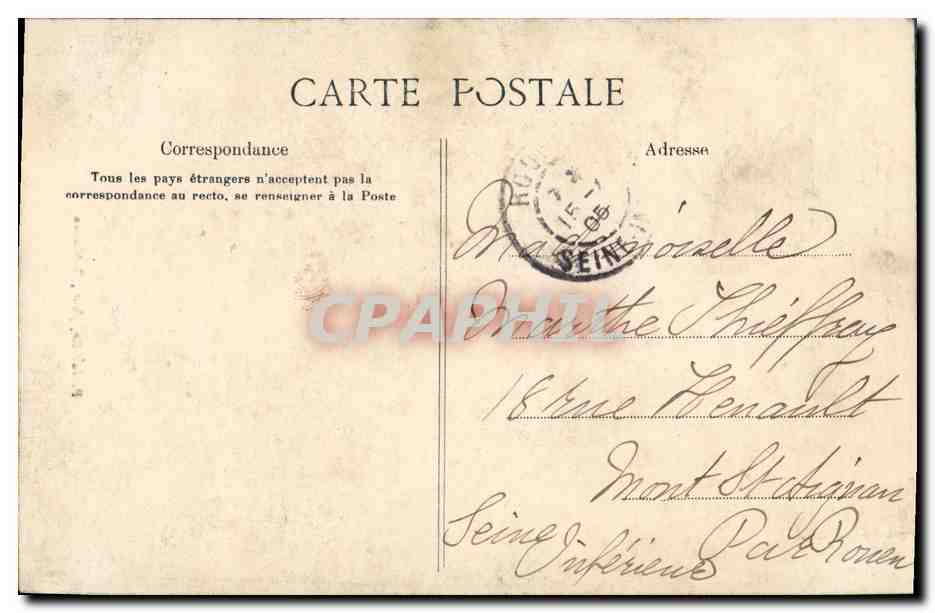 CARTE POSTALE
Correspondance
Tous les pays étrangers n'acceptent pas la
correspondance au recto, se renseigner à la Poste
Adresse
15
05
SEINE
Mademoiselle
Marthe Thieffray
18 rue Henault
Mont St Aignan
Par Rouen
Seine
Inférieure
CPAPHIL